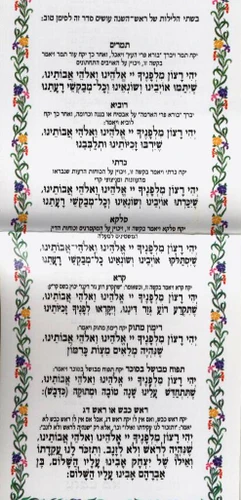 בשתי הלילות של ראש־השנה עושים סדר זה לסימן טוב:
תמרים
יקח תמר ויברך "בורא פרי העץ" ויאכל, ואחר כך יקח עוד תמר ויאמר
בקשה זו, ויכוין על האויבים התחתונים
יהי רצון מלפניך יי אלהינו ואלהי אבותינו,
שיתמו אויבינו ושונאינו וכל־מבקשי רעתנו
רוביא
יברך "בורא פרי האדמה" על
יהי רצון מלפניך יי אלהינו ואלהי אבותינו,
שירבו זכיותינו ותלבבנו
כרתי
יקח כרתי ויאמר בקשה זו, ויכוין על
יהי רצון מלפניך יי אלהינו ואלהי אבותינו,
שיכרתו אויבינו ושונאינו וכל־מבקשי רעתנו
סלקא
יקח סלקא ויאמר בקשה זו, ויכוין על המקטרגים וכחות הדין
יהי רצון מלפניך יי אלהינו ואלהי אבותינו,
שיסתלקו אויבינו ושונאינו וכל־מבקשי רעתנו
קרא
יקח קרא ויאמר בקשה זו,
יהי רצון מלפניך יי אלהינו ואלהי אבותינו,
שתקרע רוע גזר דיננו, ויקראו לפניך זכיותינו
רימון מתוק
יקח רימון מתוק ויאמר:
יהי רצון מלפניך יי אלהינו ואלהי אבותינו,
שנהיה מלאים מצות כרמון
תפוח מבושל בסוכר
יקח תפוח מבושל בסוכר ויאמר:
יהי רצון מלפניך יי אלהינו ואלהי אבותינו,
שתתחדש עלינו שנה טובה ומתוקה (כדבש):
ראש כבש או ראש דג
יקח ראש כבש, ואם אין לו יקח ראש דג, אבל אם אין לו ראש כבש לא
יאמר: "ותזכור לנו עקדתו ואילו" וגו', אלא רק "שנהיה לראש ולא לזנב":
יהי רצון מלפניך יי אלהינו ואלהי אבותינו,
שנהיה לראש ולא לזנב, ותזכר לנו עקדתו
ואילו של יצחק אבינו עליו השלום, בן
אברהם אבינו עליו השלום: